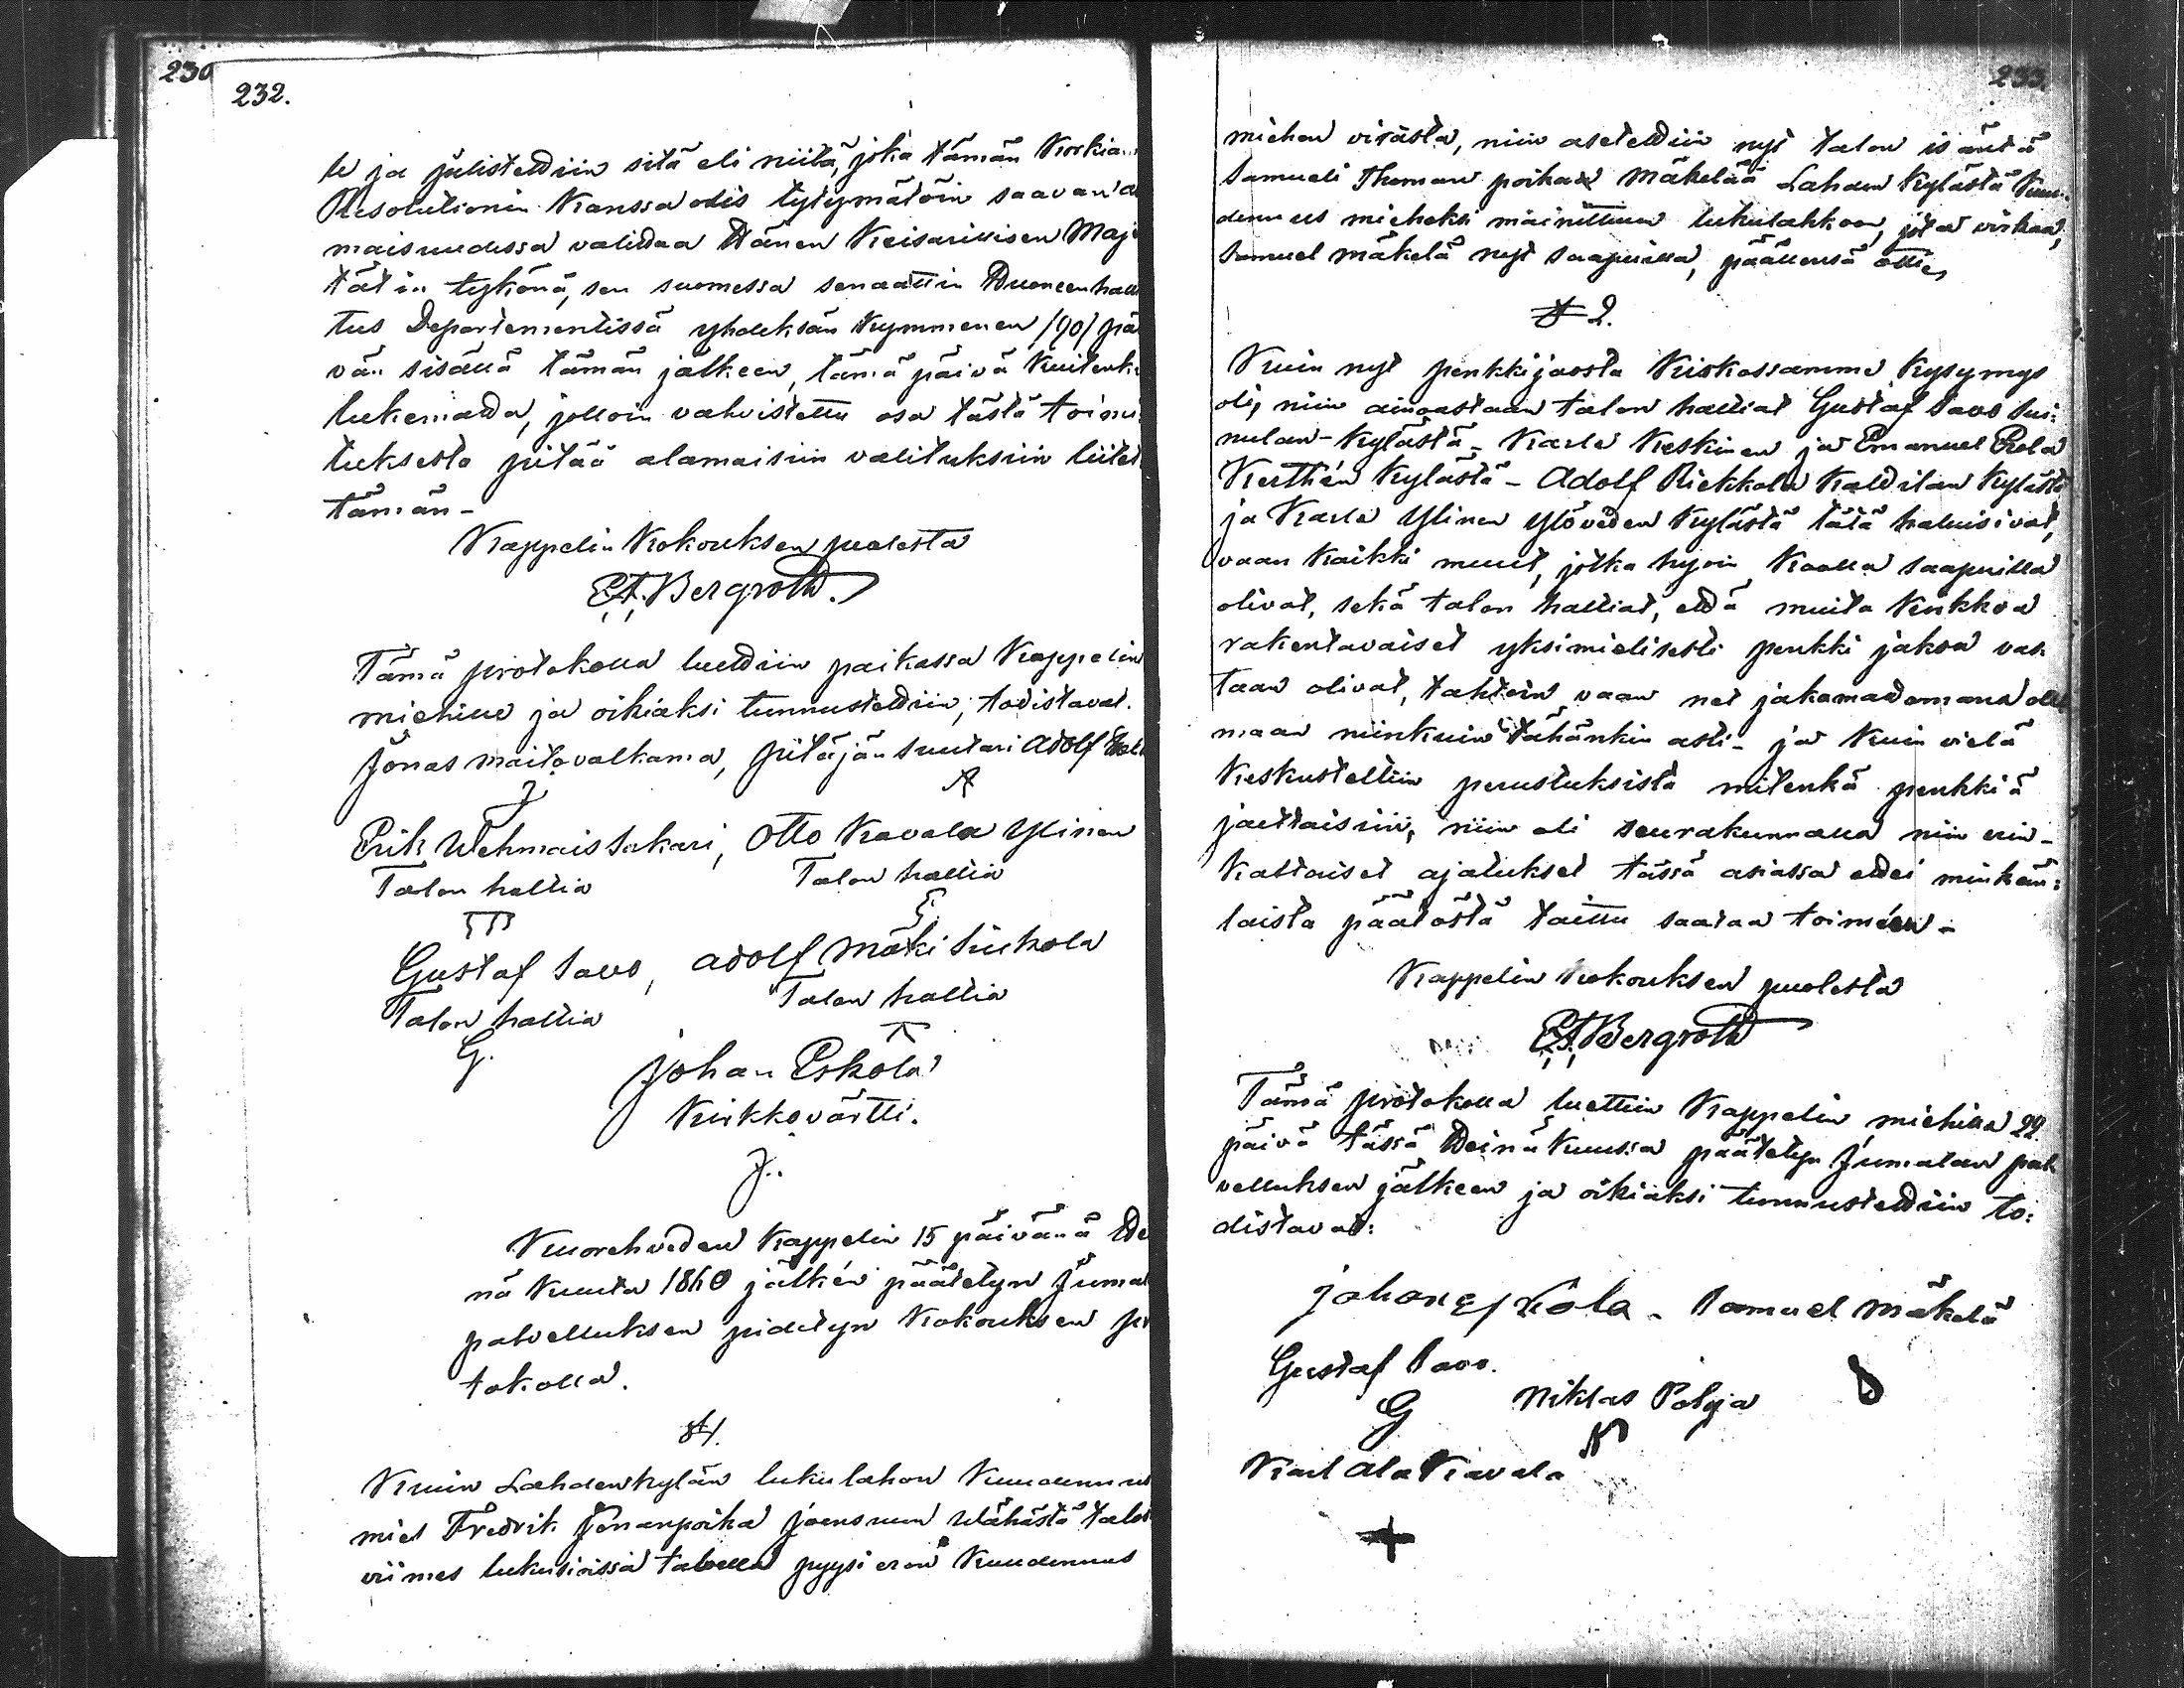 230
232.
le ja julistettiin sitä eli niitä, joka tämän Korkian
Resolutionin Kanssa olis tytymätöin saavan a
maisuudessa valittaa Hänen Keisarillisen Maje
tätin tykönä, sen suomessa senaattin Huoneenhalli
tus Departementissä yhdeksän kymmenen /90/ päi
vän sisällä tämän jälkeen, tämä päivä Kuitenki
lukematta, jolloin vahvistettu osa tästä toimi
tuksesta pitää alamaisiin valituksiin liitet
tämän -
Kappelin Kokouksen puolesta
E.A. Bergroth.
Tämä protokolla luettiin paikassa Kappelin
miehille ja oikiaksi tunnustettiin; todistavat.
Jonas maitovalkama, pitäjän suutari Adolf
J A
Erik Wehmais Sakari, Otto Kavala Ylinen
Talon haltia Talon haltia
Gustaf Savo, Adolf Mäki Siuhola
Talon haltia Talon haltia
G.
Johan Eskola
Kirkkovärtti.
J..
Kuorehveden Kappelin 15 päivänä Hei
nä Kuuta 1860 jälkén päätetyn Jumal
palvelluksen pidetyn Kokouksen pr
tokolla.
§ 1.
Kuin Lahdenkylän lukulahon Kuudennus
mies Fredrik Jonanpoika joensuun Wähästä talos
viimes lukusiassa talvella pyysi eron Kuudennus
233.
miehen virasta, niin asetettiin nyt talon isäntä
Samueli Thoman poikaa Mäkelää Lahden Kylästä Kuu-
dennus mieheksi mainittuun lukulahkoon, jota virkaa,
Samuel mäkelä nyt saapuilla, päällensä otti,
§ 2.
Kuin nyt penkkijaosta Kirkossamme Kysymys
oli, niin ainoastaan talon haltiat Gustaf Savo Sui:
nulan-Kylästä - Karle Keskinen ja Emanuel Erola
Kerthén Kylästä - Adolf Riekkola Kaltilan Kylästä
ja Karle Ylinen Ylöveden Kylästä tätä haluisivat,
vaan Kaikki muut, jotka hyvin Koolla saapuilla
olivat, sekä talon haltiat, että muita Kirkkoa
rakentavaiset yksimielisesti penkki jakoa vas
taan olivat, tahtoin vaan net jakamattomana ole
maan niinkuin tähänkin asti - ja Kuin vielä
Keskusteltiin perustuksista mitenkä penkkiä
jaettaisiin, niin oli seurakunnalla niin erin-
Kaltaiset ajatukset tässä asiassa ettei minkän:
laista päätöstä taittu saataa toimén -
Kappelin Kokouksen puolesta
E.A. Bergroth
Tämä protokolla luettiin Kappelin miehille 22
päivä tässä Heinä Kuussa päätetyn Jumalan pal
velluksen jälkeen ja oikiaksi tunnustettiin to:
distavat:
Johan Eskola - Samuel Mäkelä
Gustaf Savo.
G Niklas Pohja
N
Karl Ala Kavala